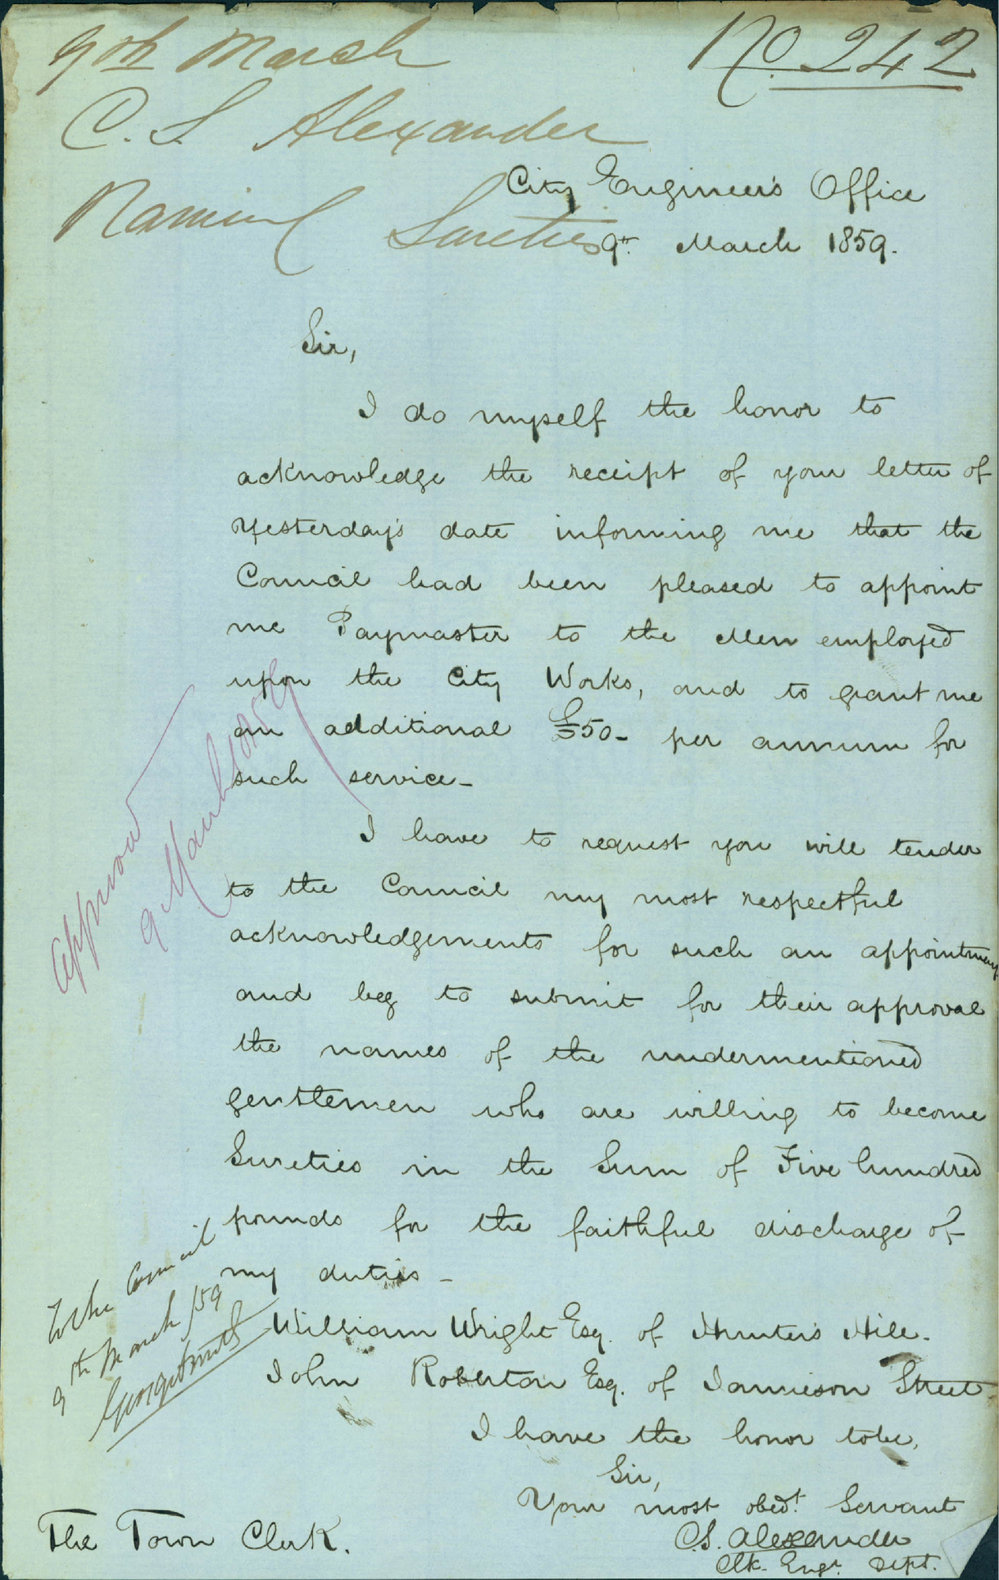 9th March
No. 242
C. S Alexander
Naming Sureties
City Engineer's Office
9th March 1859.
Sir,
I do myself the honor to
acknowledge the receipt of your letter of
yesterday's date informing me that the
Council had been pleased to appoint
me Paymaster to the Men employed
upon the City Works, and to grant me
an additional £50- per annum for
such service-
I have to request you will tender
to the Council my most respectful
acknowledgements for such an appointment
and beg to submit for their approval
the names of the undermentioned
gentlemen who are willing to become
Sureties in the Sum of Five hundred
pounds for the faithful discharge of
my duties -
William Wright Esq. of Hunter's Hill.
John Roberton Esq. of Jamieson Street
I have the honor to be,
Sir,
Your most obedt. Servant
C.S. Alexander
Clk. Engr. Dept.
The Town Clerk.
Approved
9 March 1859
To the Council
9th March /59